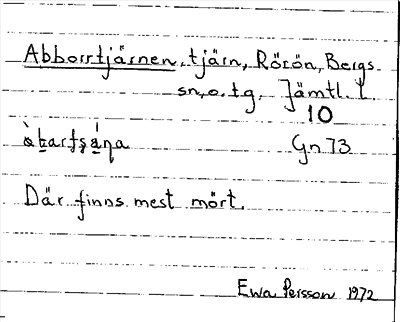 Abborrtjärnen, tjärn, Rörön, Bergs
sn, o. tg. Jämtl. L.
10
Gn 73
Där finns mest mört.
Ewa Persson 1972